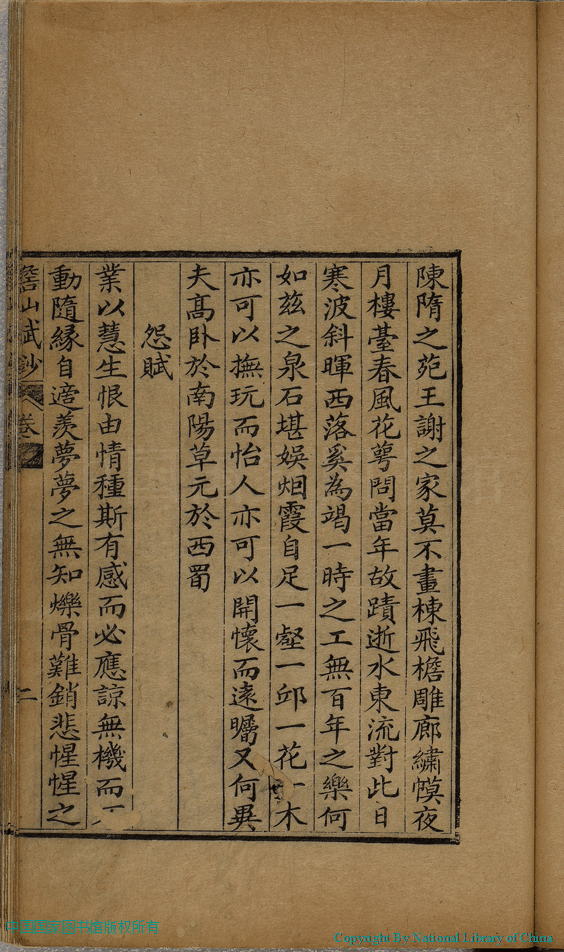 陳隋之苑王謝之家莫不畫棟飛檐雕廊繡幙夜
月樓臺春風花萼問當年故蹟逝水東流對此日
寒波斜暉西落奚為竭一時之工無百年之樂何
如玆之泉石堪娛烟霞自足一壑一邱一花一木
亦可以撫玩而怡人亦可以開懷而遠矚又何異
夫高卧於南陽草元於西蜀
怨賦
業以慧生恨由情種斯有感而必應諒無機而
動隨緣自適羨夢夢之無知爍骨難銷悲惺惺之
詹山賦鈔 卷 二
Copyright By National Library of China